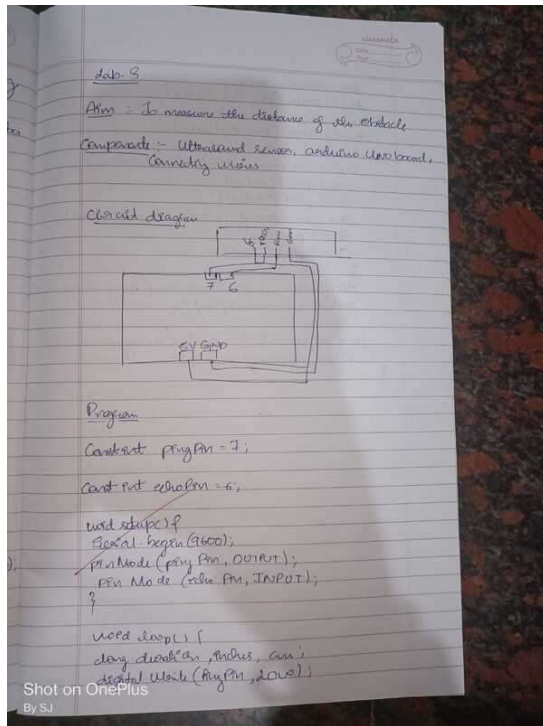 classmate
Date
Page
Lab-8
Aim : To measure the distance of the obstacle
Components :- Ultrasound sensor, arduino Uno board,
Connecting wires
Circuit diagram
7 6
5V GND
Program
Const int pingPin = 7;
Const int echoPin = 6;
void setup() {
Serial.begin(9600);
pinMode (ping Pin, OUTPUT);
pin Mode (echo Pin, INPUT);
}
void loop() {
long duration, inches, cm;
digital Write (PingPin, LOW);
Shot on OnePlus
By SJ